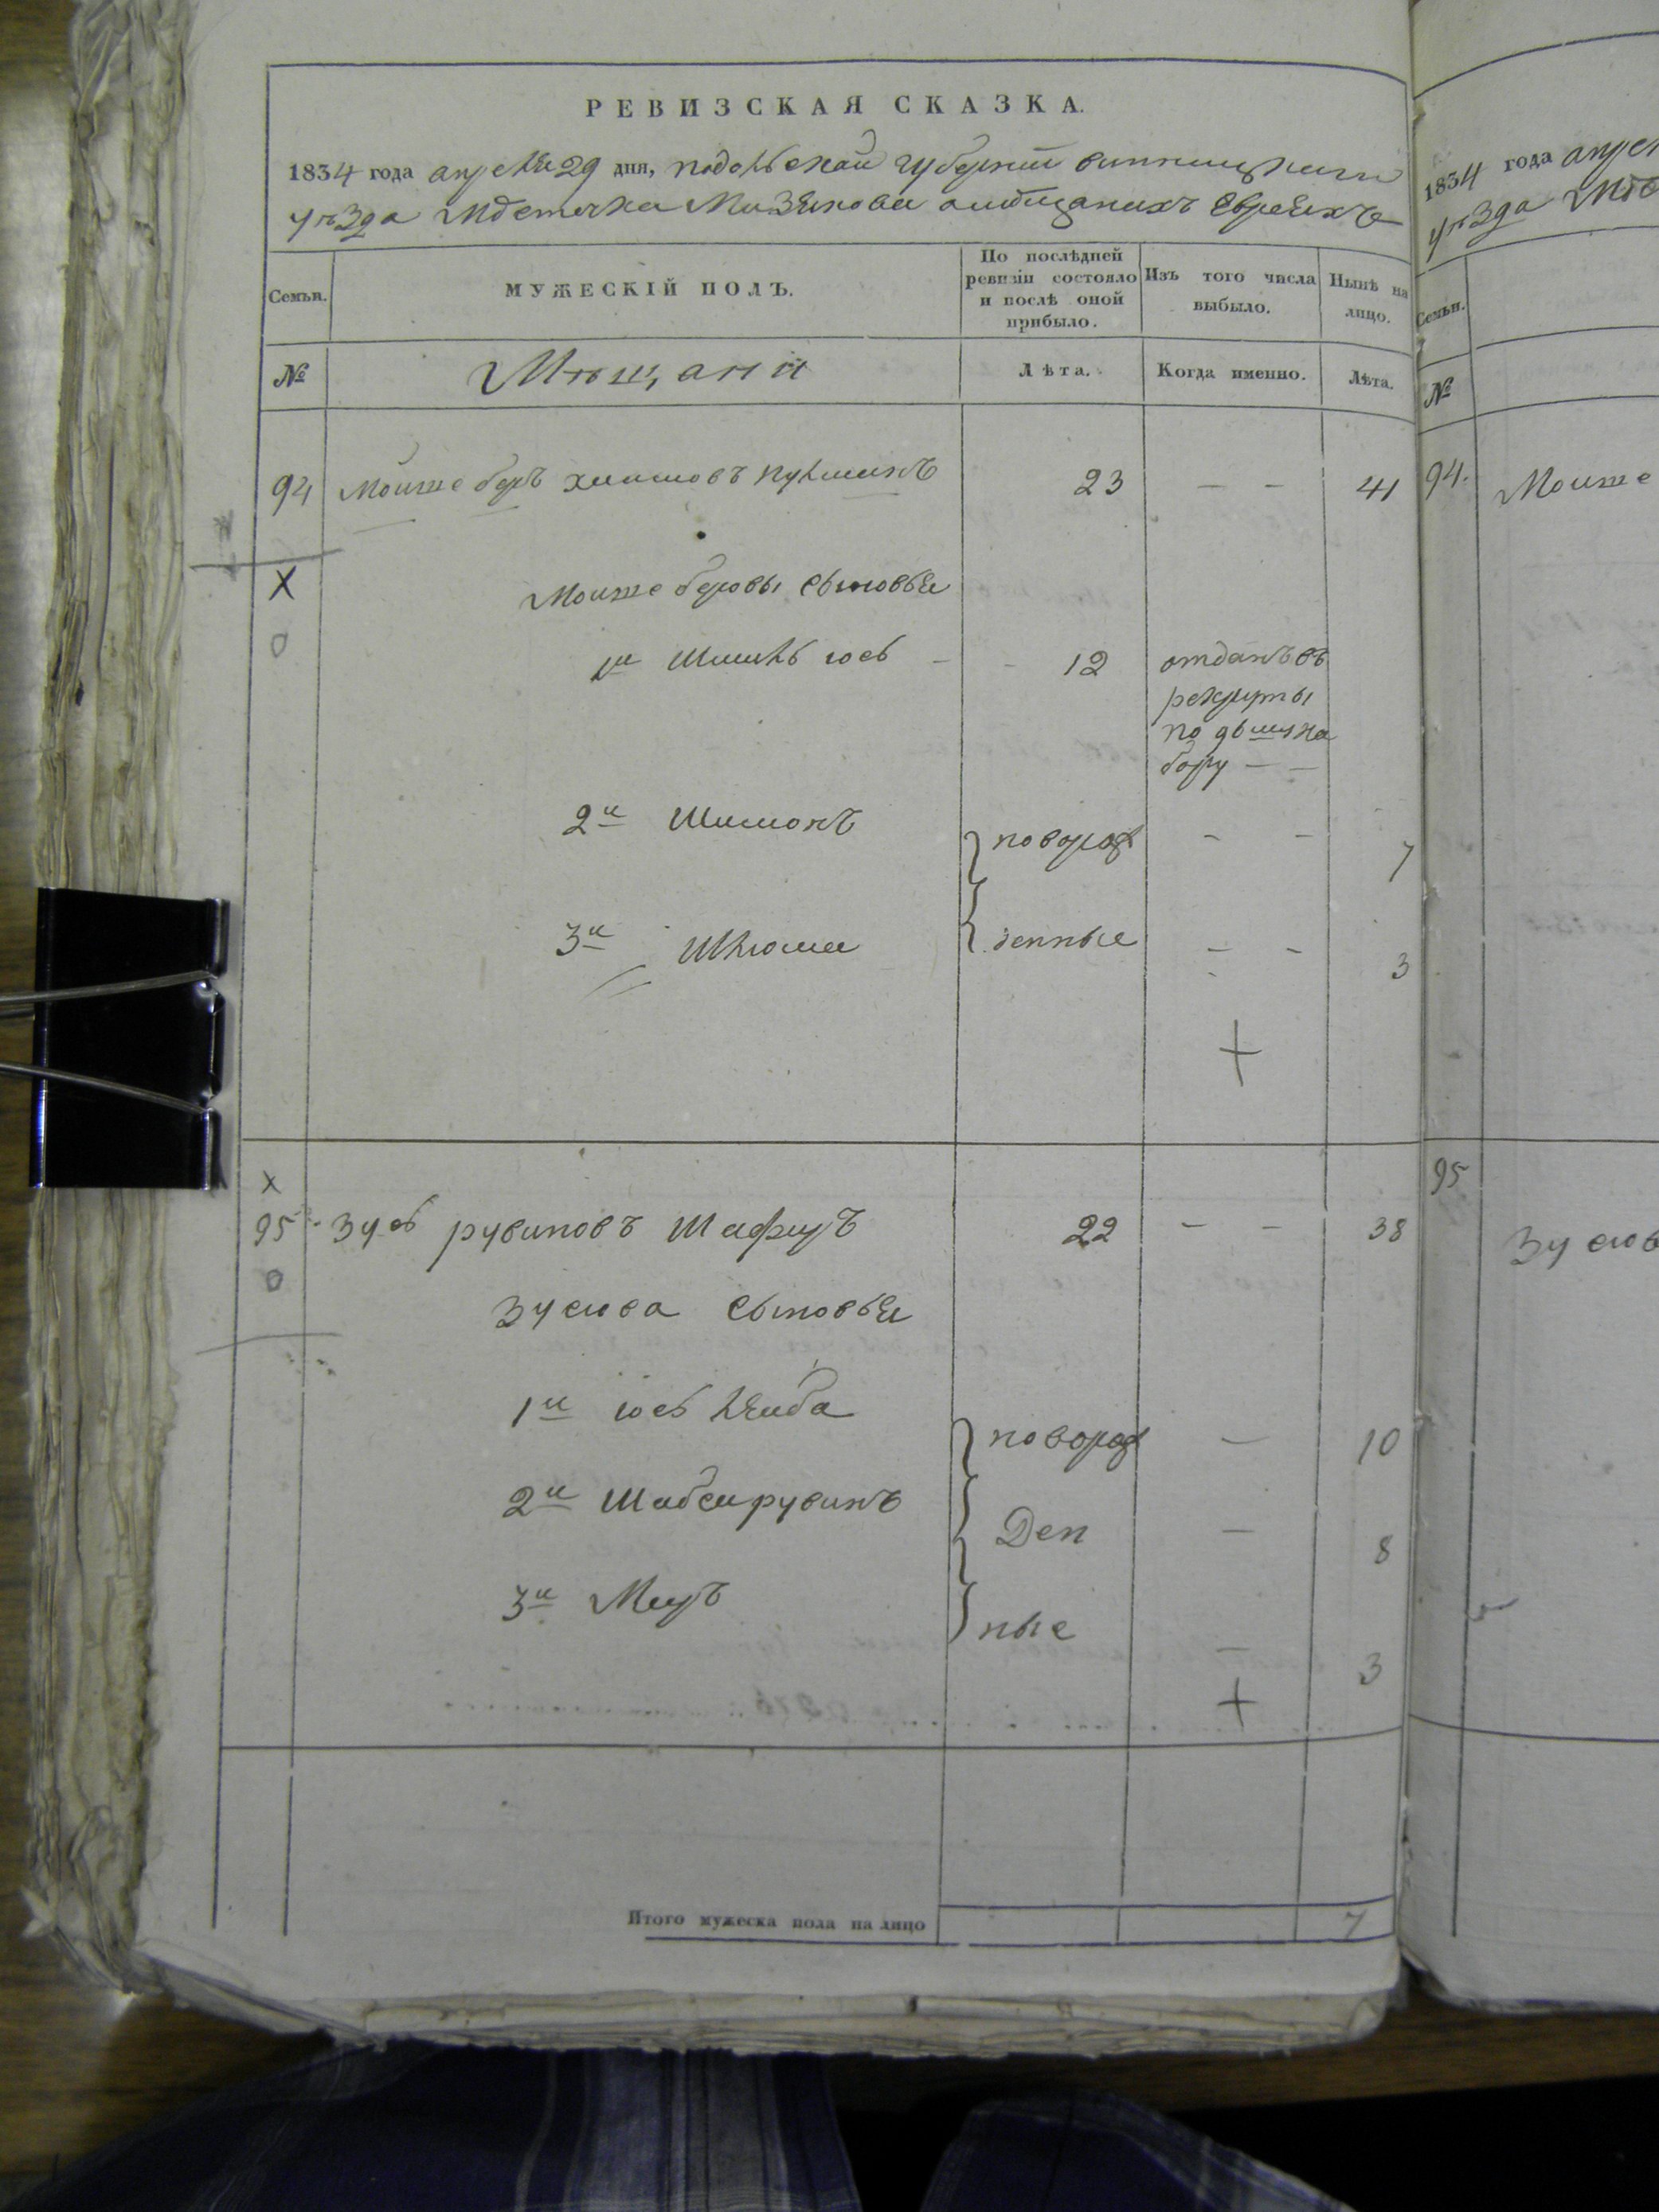 РЕВИЗСКАЯ СКАЗКА.
1834 года апреля 29 дня, подольской губернии винницкаго
уѣзда мѣстечка Мизякова о мѣщанахъ евреяхъ
Семьи.
МУЖЕСКІЙ ПОЛЪ.
По послѣдней ревизіи состояло и послѣ оной прибыло.
Изъ того числа выбыло.
Нынѣ на лицо.
№
Мѣщани
Лѣта.
Когда именно.
Лѣта.
94 Мошке беръ хаимовъ 23 — — 41
Мошке беровы сыновья
1й Шмиль іось — - 12 отданъ въ
рекруты
по 96му на
бору — —
2й Шимонъ новорож - - 7
3й Шлиома денные - - 3
+
х
95 Зусь рувиновъ Шафиръ 22 — — 38
0
Зусюва сыновья
1й іось лейба новорож — 10
2й Шабсирувинъ Ден — 8
3й Меиръ ные — 3
+
Итого мужеска пола на лицо 7
1834 года
уѣзда
Семьи.
№
94. Мошке
95
Зусюв